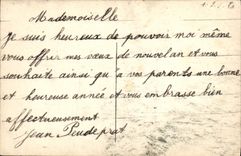 Mademoiselle
Je suis heureux de pouvoir moi même
vous offrir mes vœux de nouvel an et vous
souhaite ainsi qu'a vos parents une bonne
et heureuse année et vous embrasse bien
affectueusement
Jean